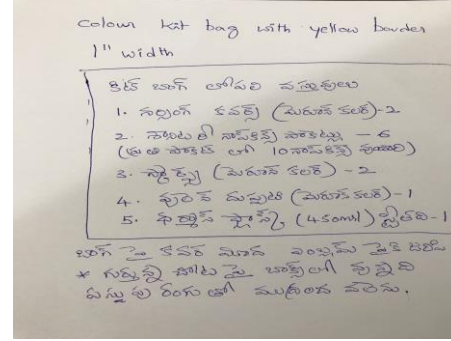 Colour kit bag with yellow border
1" width
కిట్ బాగ్ లోపలి వస్తువులు
1. నర్సింగ్ కవర్స్ (మెరూన్ కలర్)-2
2. శానిటరీ నాప్కిన్స్ పాకెట్లు - 6
(ప్రతి పాకెట్ లో 10 నాప్కిన్స్ వుండాలి)
3. స్కార్ఫ్స్ (మెరూన్ కలర్) - 2
4. వులెన్ దుప్పటి (మెరూన్ కలర్)-1
5. ఫ్లాస్క్ (450ml) స్టీలుది-1
బాగ్ పై కవర్ మీద
* గుర్తున్న చోట పై బాక్స్ లో వున్నది
పసుపు రంగుతో ముద్రించ వలెను.